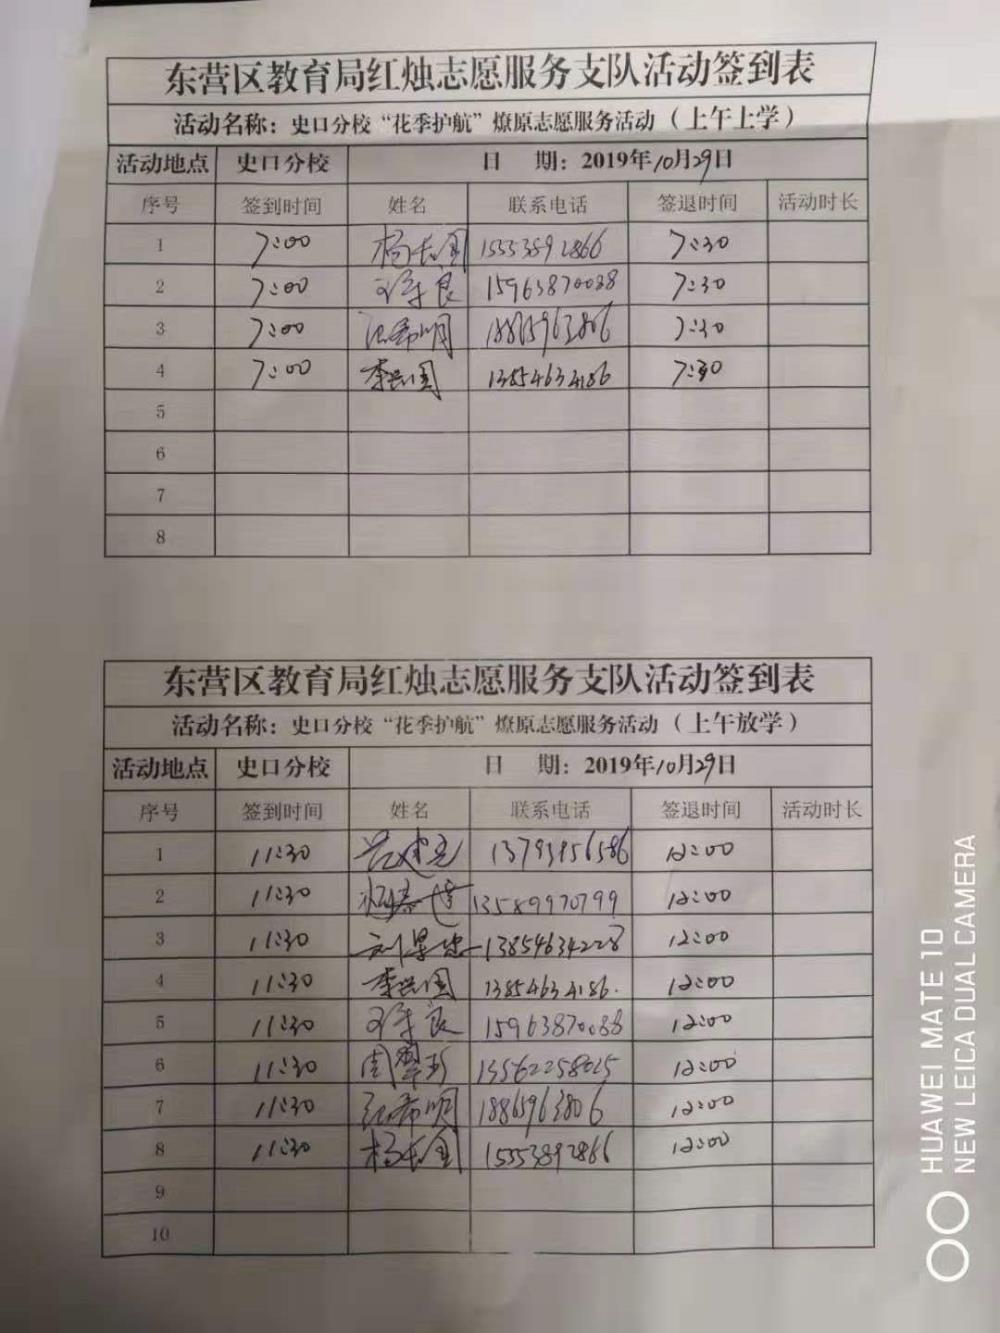 东营区教育局红烛志愿服务支队活动签到表
活动名称：史口分校“花季护航”燎原志愿服务活动（上午上学）
活动地点 史口分校 日 期：2019年10月29日
序号 签到时间 姓名 联系电话 签退时间 活动时长
1 7:00 15553892866 7:30
2 7:00 15963870088 7:30
3 7:00 张希明 18865963806 7:30
4 7:00 李兴国 13854634186 7:30
5
6
7
8
东营区教育局红烛志愿服务支队活动签到表
活动名称：史口分校“花季护航”燎原志愿服务活动（上午放学）
活动地点 史口分校 日 期：2019年10月29日
序号 签到时间 姓名 联系电话 签退时间 活动时长
1 11:30 13793956586 12:00
2 11:30 13589970799 12:00
3 11:30 13854634228 12:00
4 11:30 李兴国 13854634186. 12:00
5 11:30 15963870088 12:00
6 11:30 13562258025 12:00
7 11:30 张希明 18865963806 12:00
8 11:30 15553892866 12:00
9
10
HUAWEI MATE 10
NEW LEICA DUAL CAMERA